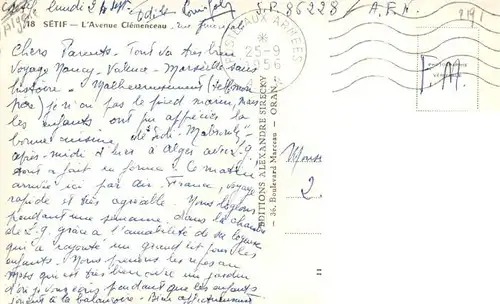 Sétif lundi 24 Sept.
S.P. 86228 / A.F.N.
18 SÉTIF - L'Avenue Clémenceau
POSTE AUX ARMÉES
25-9
1956
F.M.
Chers Parents - Tout va très bien
voyage Nancy - Valence - Marseille sans
histoire - Malheureusement
je n'ai pas le pied marin, mais
les enfants ont pu apprécier la
bonne cuisine du "Sidi-Mabrouk"
après-midi d'hier à Alger avec J.G.
dont a fait sa forme. Ce matin
arrivée ici par air France, voyage
rapide et très agréable. Nous logeons
pendant une semaine, dans la chambre
de J.G. grâce à l'amabilité de sa logeuse
qui a rajouté un grand lit pour les
enfants. Nous prenons les repas au
mess qui est très bien avec un jardin
d'où je vous écris pendant que les enfants
jouent à la balançoire. Bien affectueusement
ÉDITIONS ALEXANDRE SIRECKY
36, Boulevard Marceau - ORAN.
Mons
2